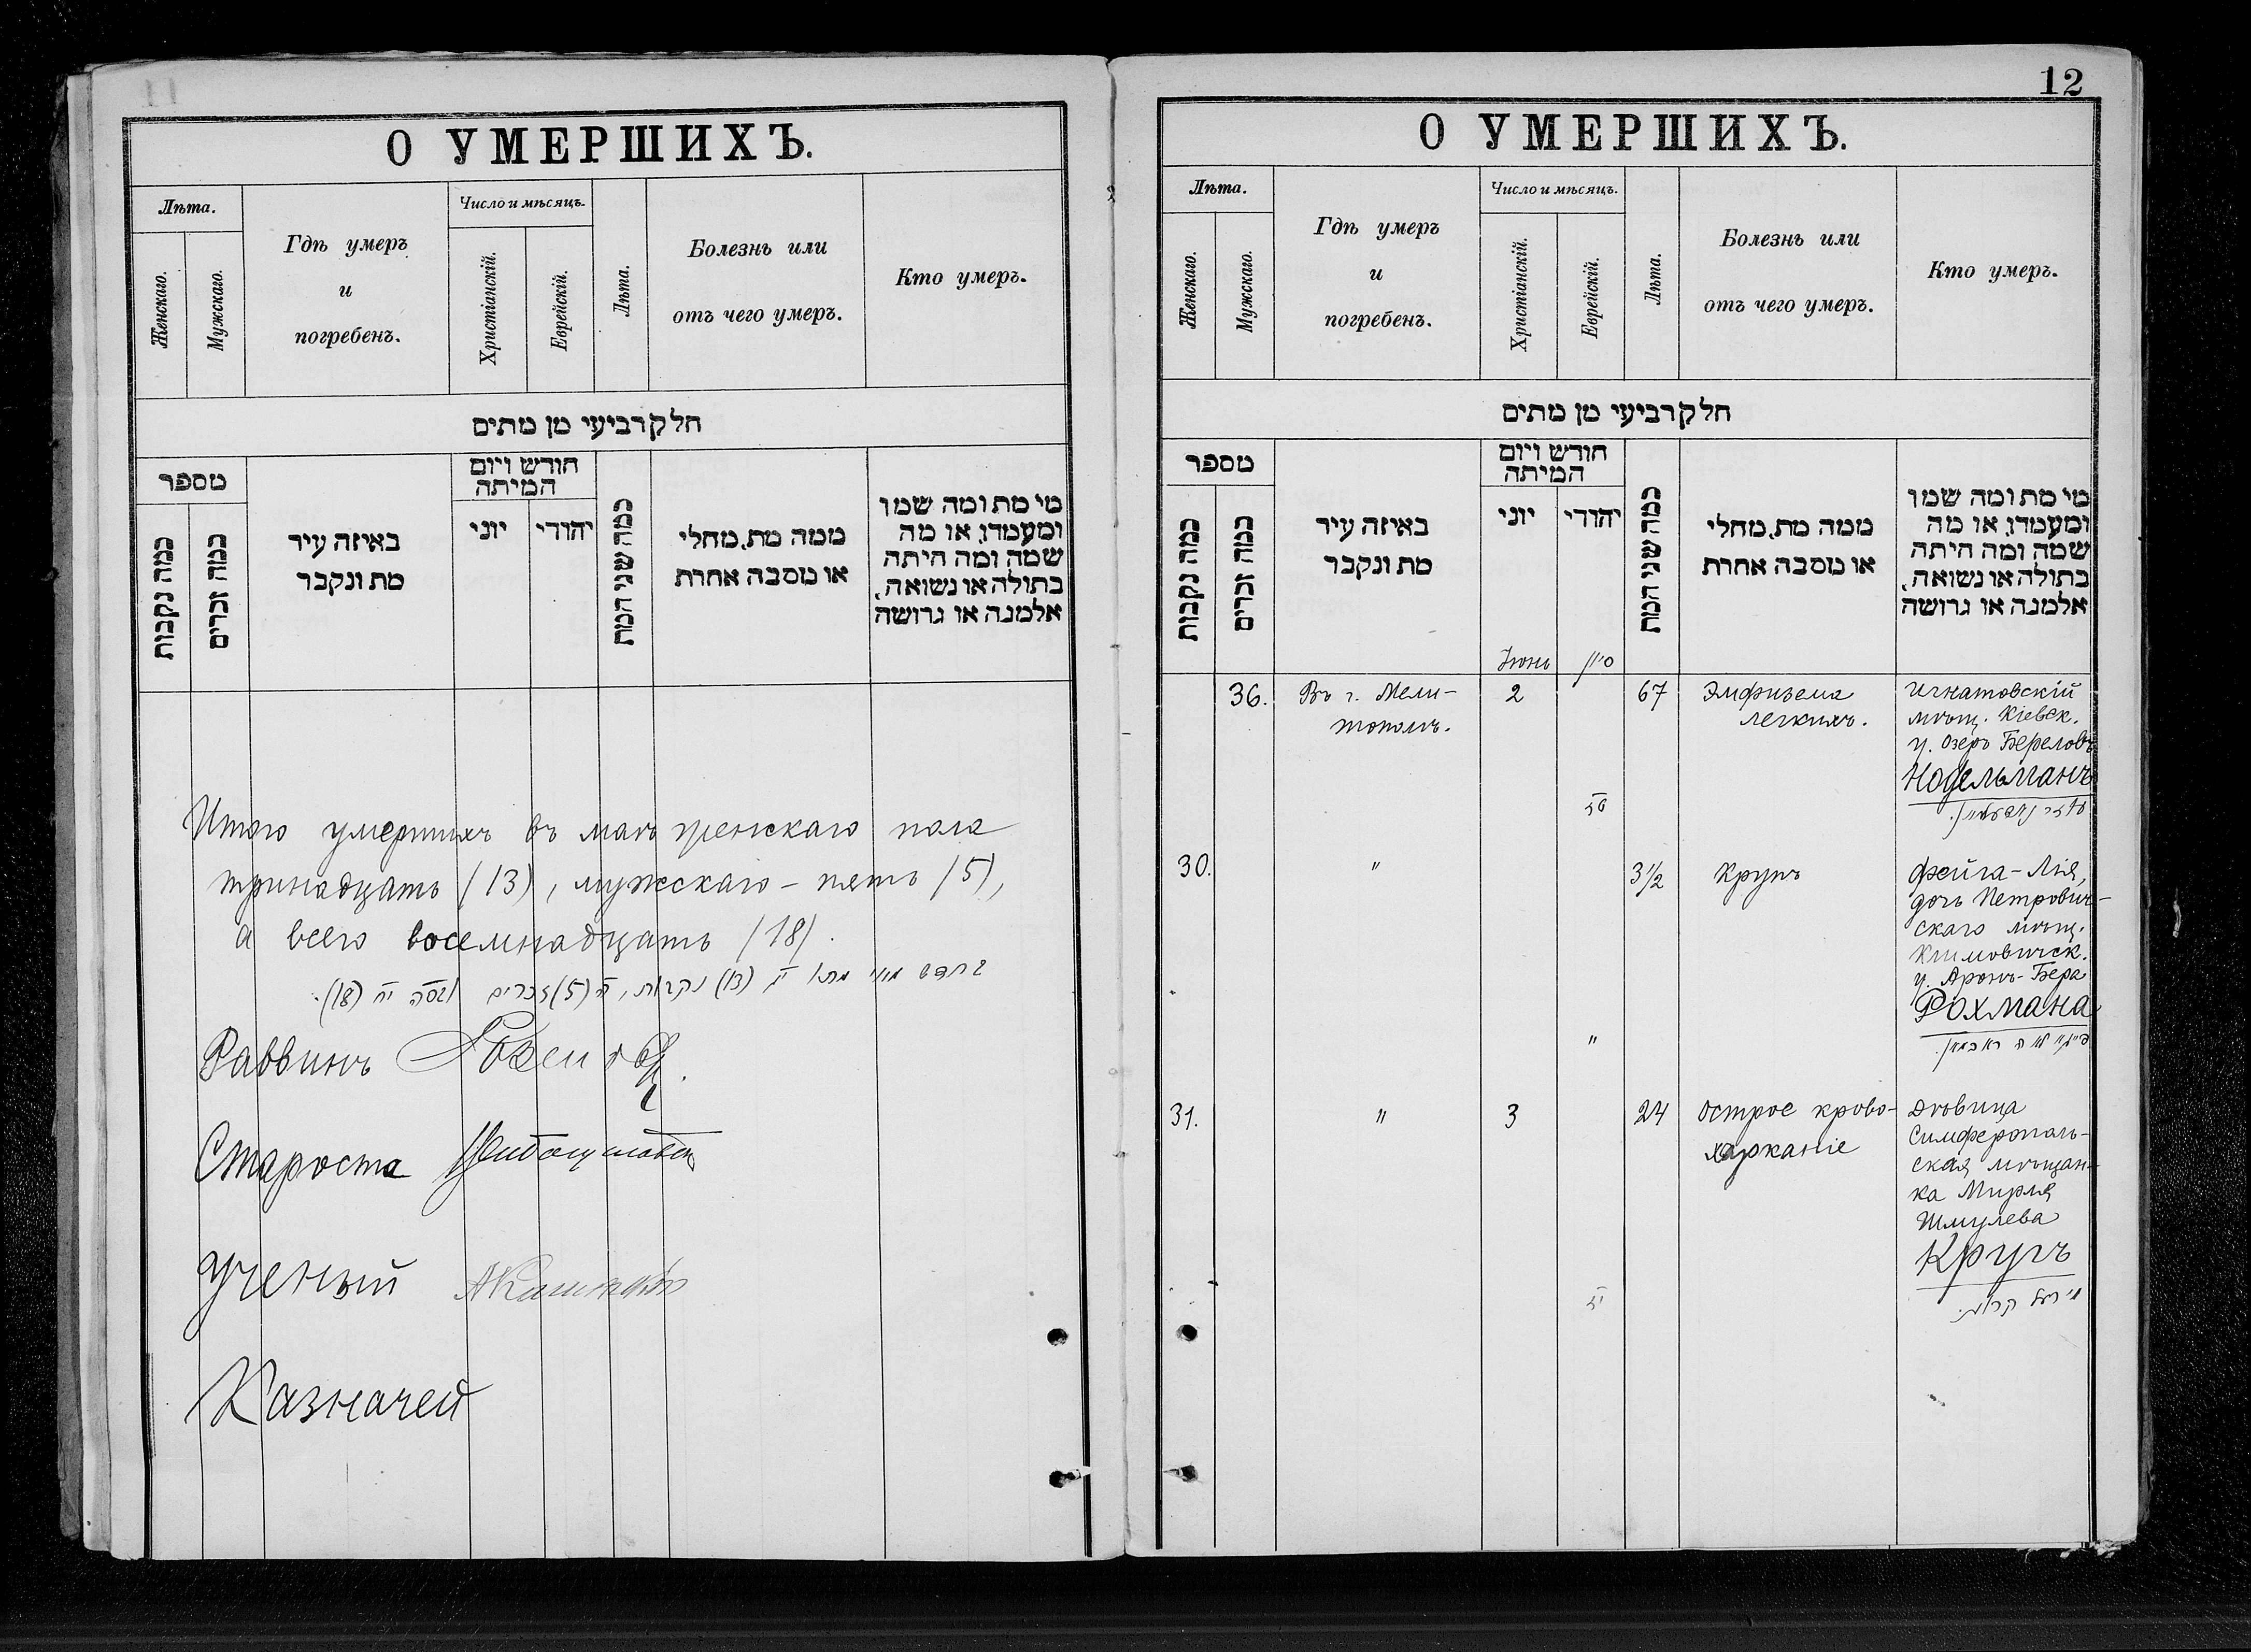 О УМЕРШИХЪ.
Лѣта.
Женскаго.
Мужскаго.
Гдѣ умеръ
и
погребенъ.
Число и мѣсяцъ.
Христіанскій.
Еврейскій.
Лѣта.
Болезнь или
отъ чего умеръ.
Кто умеръ.
חלק רביעי מן מתים
מספר
כמה נקבות
כמה זכרים
באיזה עיר
מת ונקבר
חודש ויום
המיתה
יוני
יהודי
כמה שני המת
ממה מת, מחלי
או מסבה אחרת
מי מת ומה שמו
ומעמדו, או מה
שמה ומה היתה
בתולה או נשואה,
אלמנה או גרושה
Итого умершихъ въ маѣ женскаго пола
тринадцать (13), мужскаго - пять (5),
а всего восемнадцать (18).
(13) נקבות, ה (5) זכרים יח (18).
Раввинъ
Староста
Ученый
Казначей
12
О УМЕРШИХЪ.
Лѣта.
Женскаго.
Мужскаго.
Гдѣ умеръ
и
погребенъ.
Число и мѣсяцъ.
Христіанскій.
Еврейскій.
Лѣта.
Болезнь или
отъ чего умеръ.
Кто умеръ.
חלק רביעי מן מתים
מספר
כמה נקבות
כמה זכרים
באיזה עיר
מת ונקבר
חודש ויום
המיתה
יוני
יהודי
כמה שני המת
ממה מת, מחלי
או מסבה אחרת
מי מת ומה שמו
ומעמדו, או מה
שמה ומה היתה
בתולה או נשואה,
אלמנה או גרושה
Іюнь
סיון
36.
Въ г. Мели-
тополѣ.
2
67
Эмфизема
легкихъ.
Игнатовскій
мѣщ. Кіевск.
у. Озеръ Береловъ
Нодельманъ
30.
"
"
3 1/2
Крупъ
Фейга-Лія,
дочь Петрович-
скаго мѣщ.
Климовичск.
у. Аронъ-Бера
Рохмана
31.
"
3
24
Острое крово-
харканіе
Дѣвица
Симферополь-
ская мѣщан-
ка Мирля
Шмулева
Кругъ
מירל קרוג.